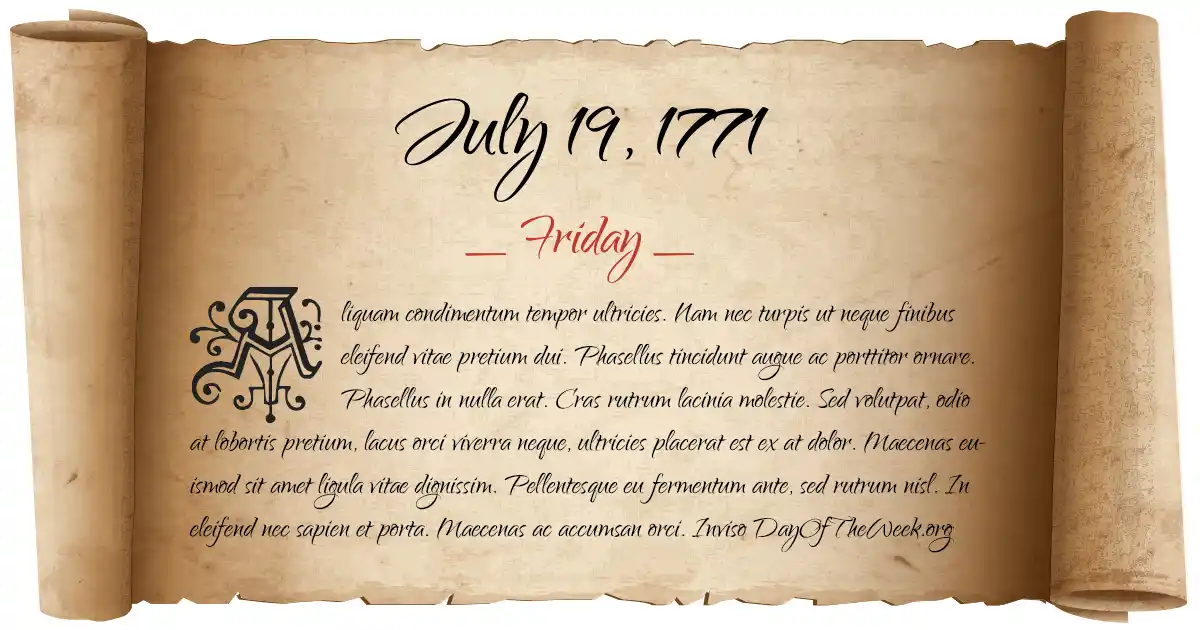 July 19, 1771
_ Friday _
Aliquam condimentum tempor ultricies. Nam nec turpis ut neque finibus
eleifend vitae pretium dui. Phasellus tincidunt augue ac porttitor ornare.
Phasellus in nulla erat. Cras rutrum lacinia molestie. Sed volutpat, odio
at lobortis pretium, lacus orci viverra neque, ultricies placerat est ex at dolor. Maecenas eu-
ismod sit amet ligula vitae dignissim. Pellentesque eu fermentum ante, sed rutrum nisl. In
eleifend nec sapien et porta. Maecenas ac accumsan orci. Inviso DayOfTheWeek.org